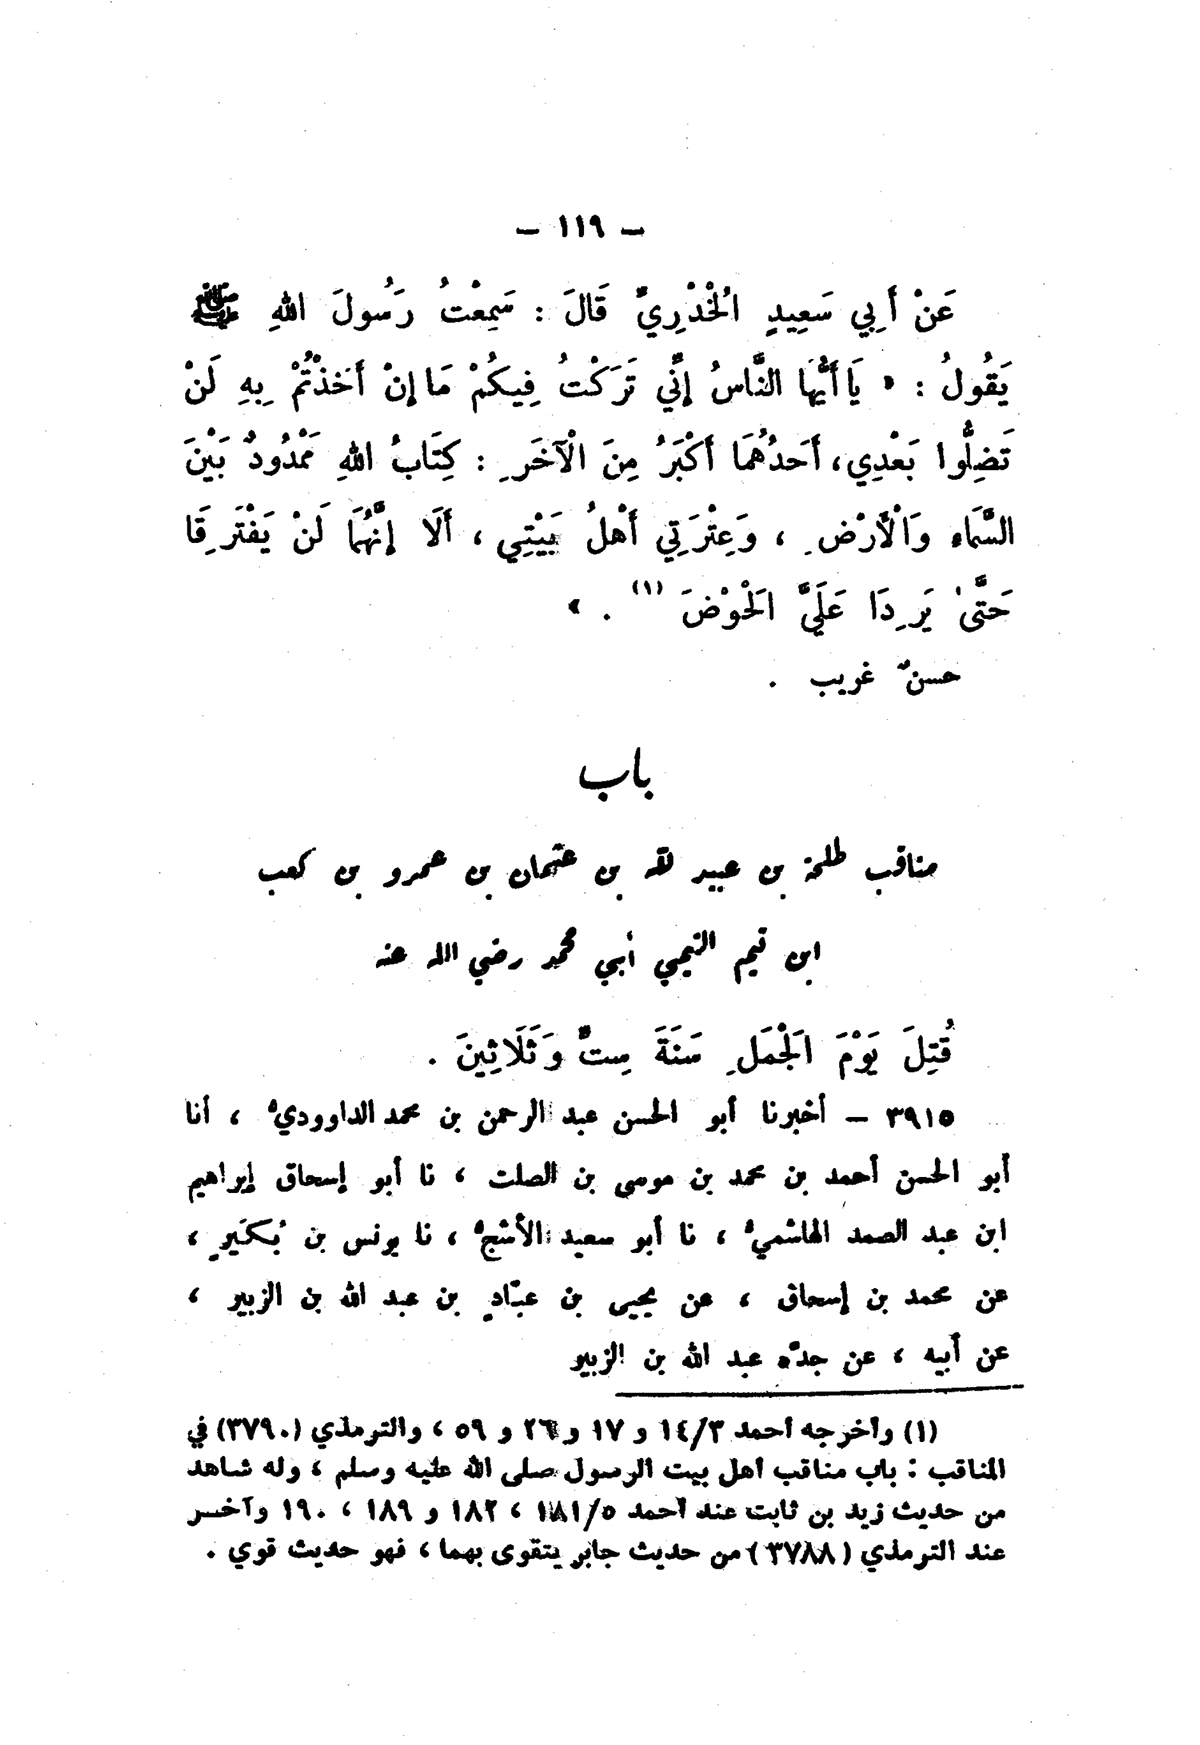 — ١١٩ —
عَنْ أَبِي سَعِيدٍ الْخُدْرِيِّ قَالَ : سَمِعْتُ رَسُولَ اللهِ ﷺ
يَقُولُ : « يَا أَيُّهَا النَّاسُ إِنِّي تَرَكْتُ فِيكُمْ مَا إِنْ أَخَذْتُمْ بِهِ لَنْ
تَضِلُّوا بَعْدِي، أَحَدُهُمَا أَكْبَرُ مِنَ الْآخَرِ : كِتَابُ اللهِ مَمْدُودٌ بَيْنَ
السَّمَاءِ وَالْأَرْضِ ، وَعِتْرَتِي أَهْلُ بَيْتِي ، أَلَا إِنَّهُمَا لَنْ يَفْتَرِقَا
حَتَّىٰ يَرِدَا عَلَيَّ الْحَوْضَ (١) . »
حسنٌ غريب .
باب
مناقب طلحة بن عبيد الله بن عثمان بن عمرو بن كعب
ابن تيم التيمي أبي محمد رضي الله عنه
قُتِلَ يَوْمَ الْجَمَلِ سَنَةَ سِتٍّ وَثَلَاثِينَ .
٣٩١٥ — أخبرنا أبو الحسن عبد الرحمن بن محمد الداوودي ، أنا
أبو الحسن أحمد بن محمد بن موسى بن الصلت ، نا أبو إسحاق إبراهيم
ابن عبد الصمد الهاشمي ، نا أبو سعيد الأشج ، نا يونس بن بُكَيرٍ ،
عن محمد بن إسحاق ، عن يحيى بن عبّادٍ بن عبد الله بن الزبير ،
عن أبيه ، عن جدّه عبد الله بن الزبير
(١) وأخرجه أحمد ١٤/٣ و ١٧ و ٢٦ و ٥٩ ، والترمذي (٣٧٩٠) في
المناقب : باب مناقب أهل بيت الرسول صلى الله عليه وسلم ، وله شاهد
من حديث زيد بن ثابت عند أحمد ١٨١/٥ ، ١٨٢ و ١٨٩ ، ١٩٠ وآخر
عند الترمذي (٣٧٨٨) من حديث جابر يتقوى بهما ، فهو حديث قوي .